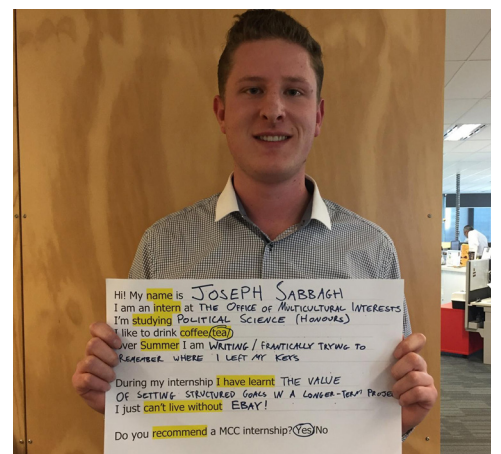 Hi! My name is JOSEPH SABBAGH
I am an intern at THE OFFICE OF MULTICULTURAL INTERESTS
I'm studying POLITICAL SCIENCE (HONOURS)
I like to drink coffee/tea/
Over Summer I am WRITING / FRANTICALLY TRYING TO
REMEMBER WHERE I LEFT MY KEYS
During my internship I have learnt THE VALUE
OF SETTING STRUCTURED GOALS IN A LONGER-TERM
I just can't live without EBAY!
Do you recommend a MCC internship? Yes/No